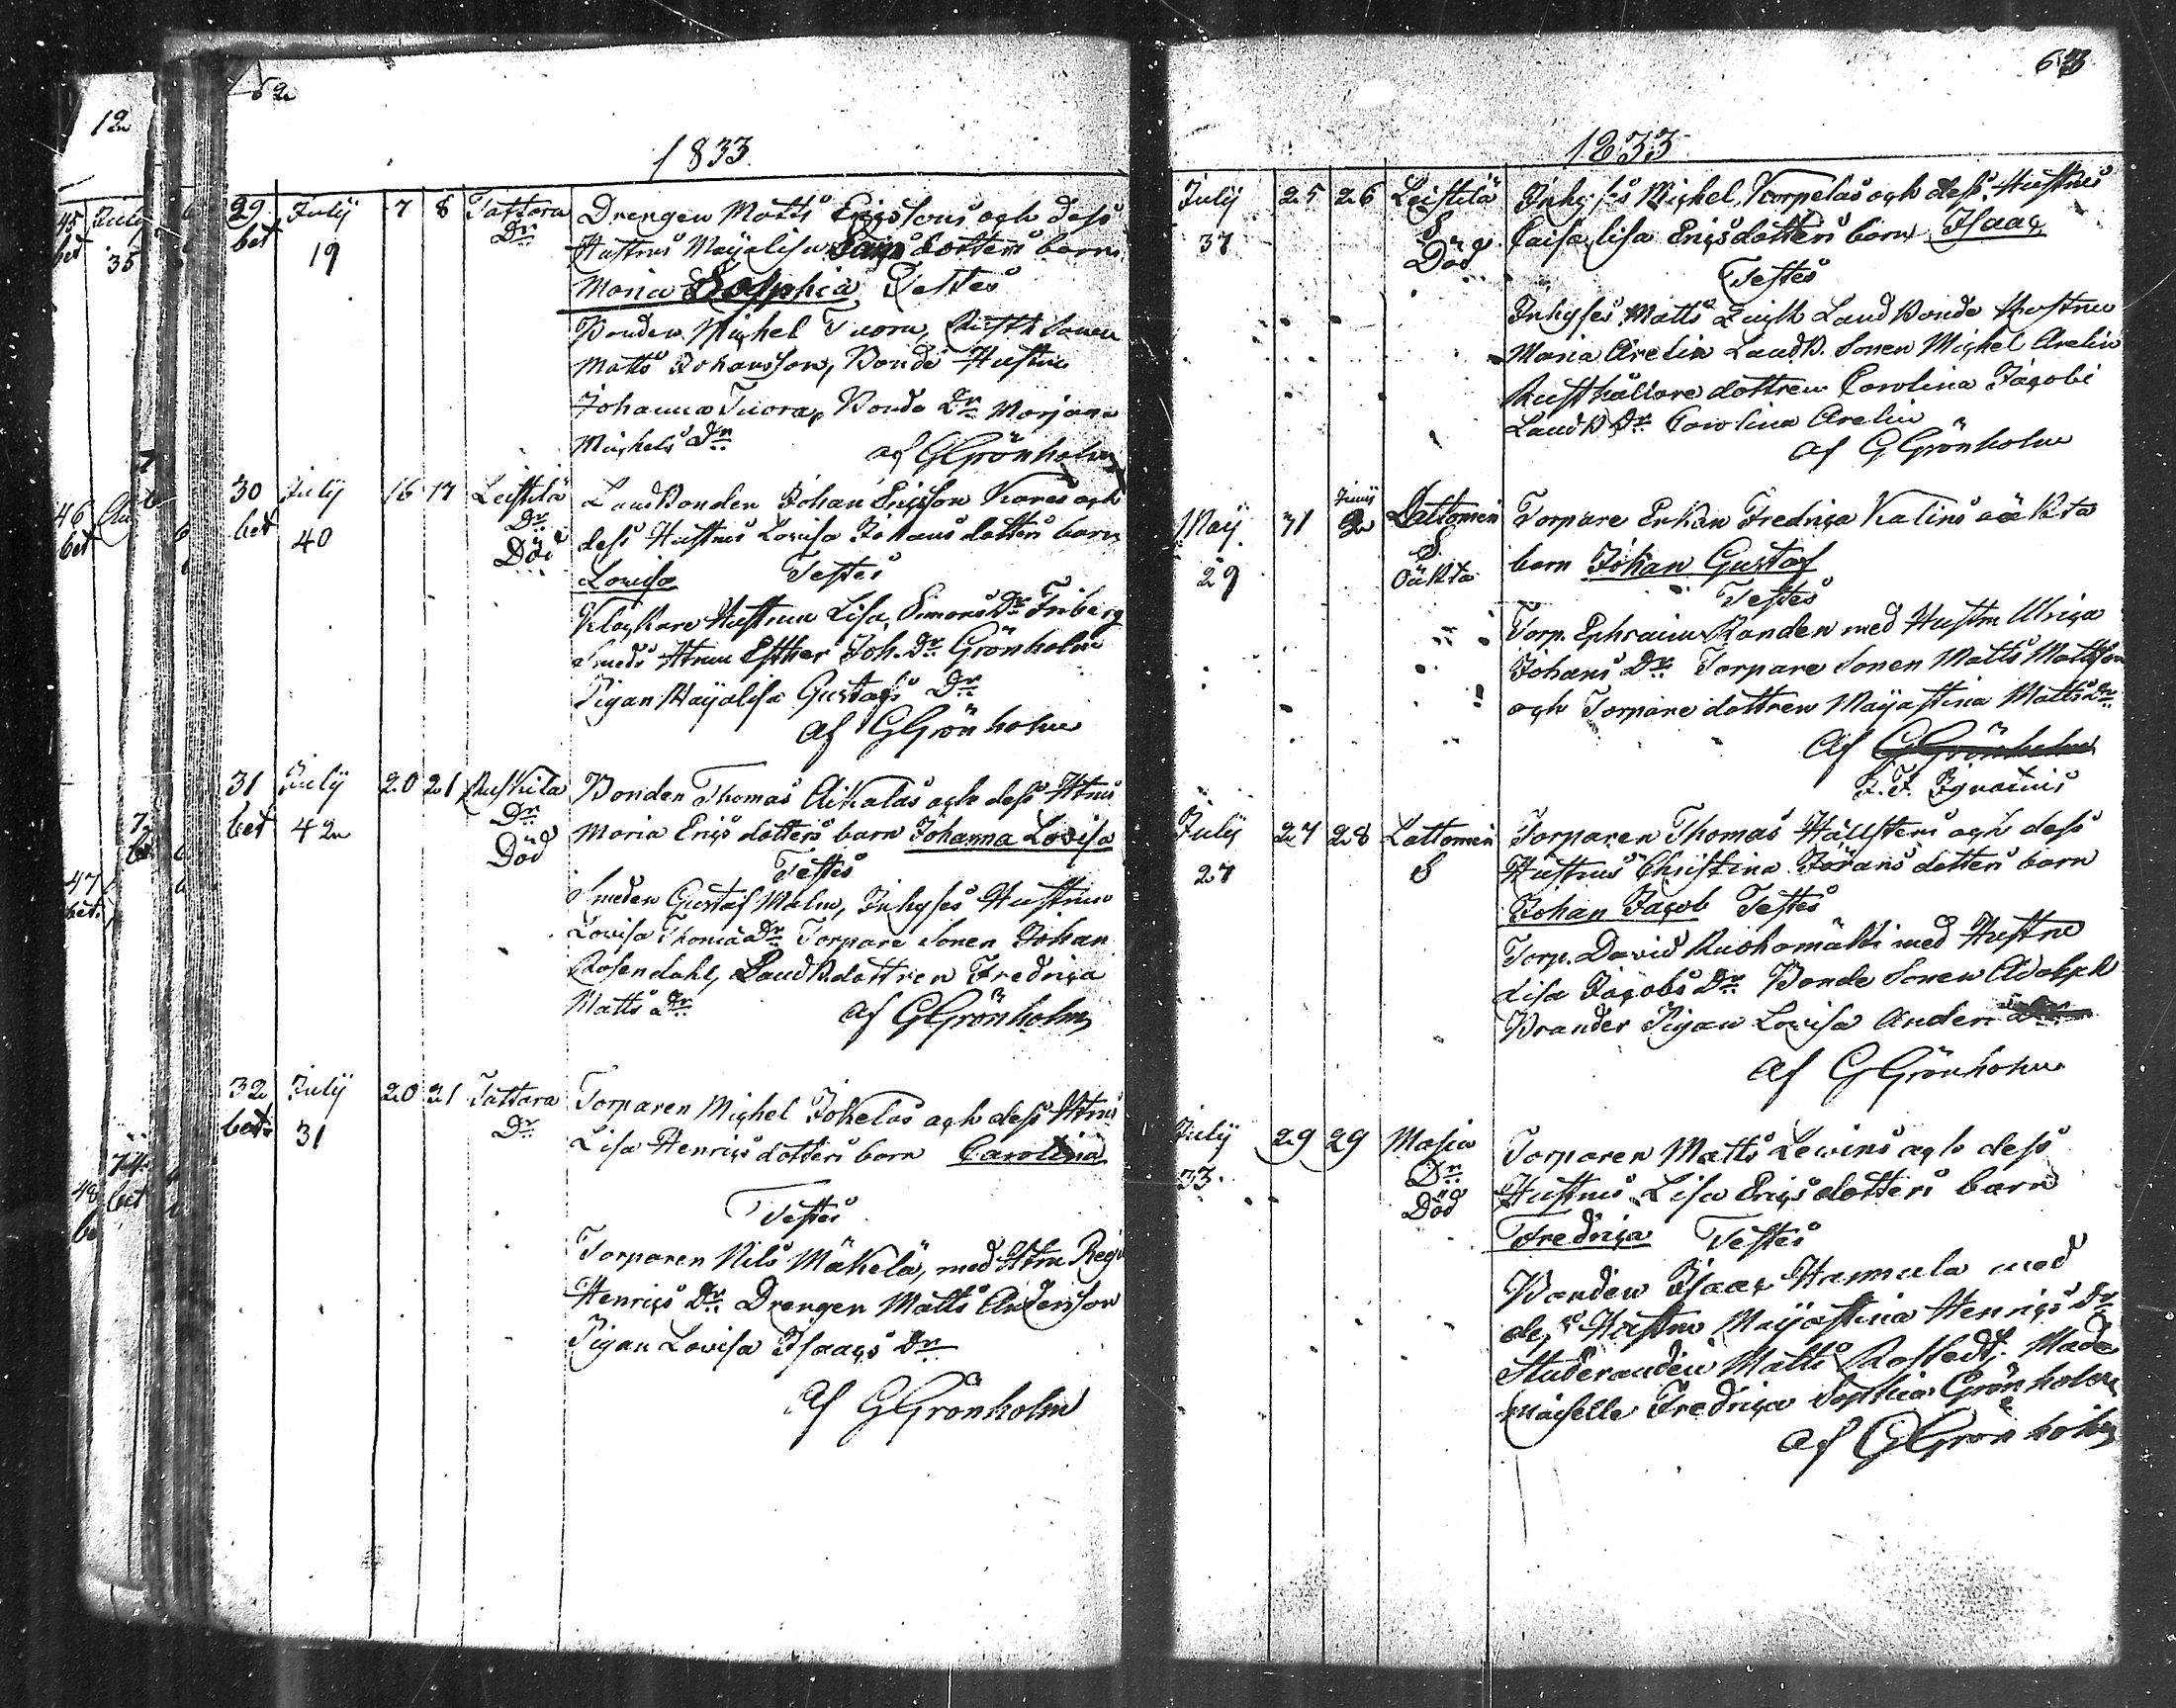 62
1833
29 July 7 8 Tattara Drengen Matts Ericssons och dess
bet 19 Dr Hustrus Majalisa dotters barn
Maria Sophia Testes
Bonden Michel Tuora, Rusth Sonen
Matts Johansson, Bonde Hustru
Johanna Tuora, Bonde Dr Marjana
Michels Dr
af GGrönholm
30 July 16 17 Leistilä LandBonden Johan Ericsson Kares och
bet 40 Dr Död dess Hustrus Lovisa Johans dotters barn
Lovisa Testes
Klockare Hustrun Lisa Simons Dr Friberg
Smeds Htrun Esther Joh. Dr Grönholm
Pigan Majalisa Gustafs Dr
af GGrönholm
31 July 20 21 Ruskila Bonden Thomas Aikalas och dess Htrus
bet 42 Dr Död Maria Erics dotters barn Johanna Lovisa
Testes
Smeden Gustaf Malm, Inhyses Hustrun
Lovisa Thomæ Dr Torpare Sonen Johan
Rosendahl, LandB.dottren Fredrica
Matts Dr
af GGrönholm
32 July 20 21 Tattara Torparen Michel Jokelas och dess Htrus
bet 31 Dr Lisa Henrics dotters barn Carolina
Testes
Torparen Nils Mäkelä, med Htru
Henrics Dr Drengen Matts Andersson
Pigan Lovisa Isaacs Dr
af GGrönholm
63
1833
July 25 26 Leistilä Inhyses Michel Korpelas och dess Hustrus
37 S Död Caisa lisa Ericsdotters barn Isaac
Testes
Inhyses Matts LandBonde Hustru
Maria Arelin LandB. Sonen Michel Arelin
Rusthållare dottren Carolina Jacobi
LandB Dr Carolina Arelin
af GGrönholm
Junij
May 31 2 Lattomeri Torpare Enkan Fredrica Kalins oäkta
29 S Oäkta barn Johan Gustaf
Testes
Torp. Ephraim Randen med Hustru Ulrica
Johans Dr Torpare Sonen Matts Mattsson
och Torpare dottren Majastina Matts Dr
af GGrönholm
F. Ignatius
July 27 28 Lattomeri Torparen Thomas Hällstens och dess
27 S Hustrus Christina Jörans dotters barn
Johan Jacob Testes
Torp. David Ruohomäki med Hustru
Lisa Jacobs Dr Bonde Sonen Adolph
Brander Pigan Lovisa Anders
af GGrönholm
July 29 29 Masia Torparen Matts Lewins och dess
33 Dr Död Hustrus Lisa Erics dotters barn
Fredrica Testes
Bonden Isaac Hannula med
dess Hustru Majastina Henrics Dr
Studeranden Matts Rostedt, Made
moiselle Fredrica Sophia Grönholm
af GGrönholm